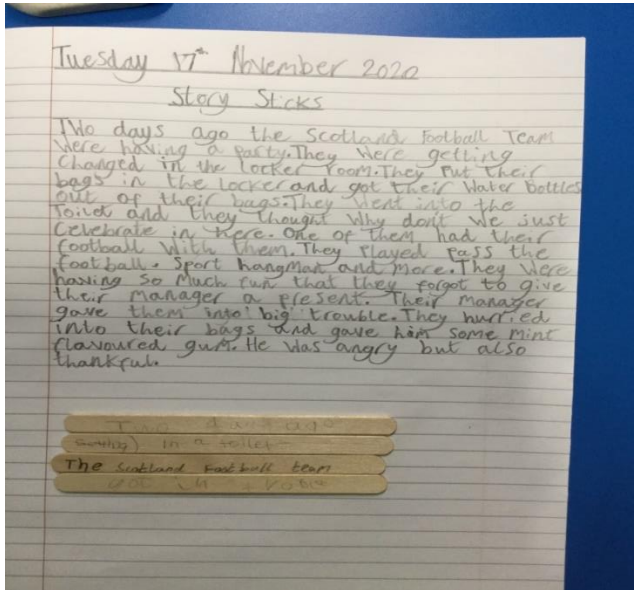 Tuesday 17th November 2020
Story Sticks
Two days ago the Scotland Football Team
Were having a party. They Were getting
Changed in the locker room. They Put their
bags in the locker and got their Water bottles
out of their bags. They Went into the
Toilet and they thought Why don't We just
Celebrate in here. One of them had their
football With them. They Played Pass the
football. Sport hangman and more. They Were
having So Much fun that they forgot to give
their Manager a present. Their manager
gave them into big trouble. They hurried
into their bags and gave him Some mint
flavoured gum. He Was angry but also
thankful.
Two days ago
in a toilet
The Scotland Football team